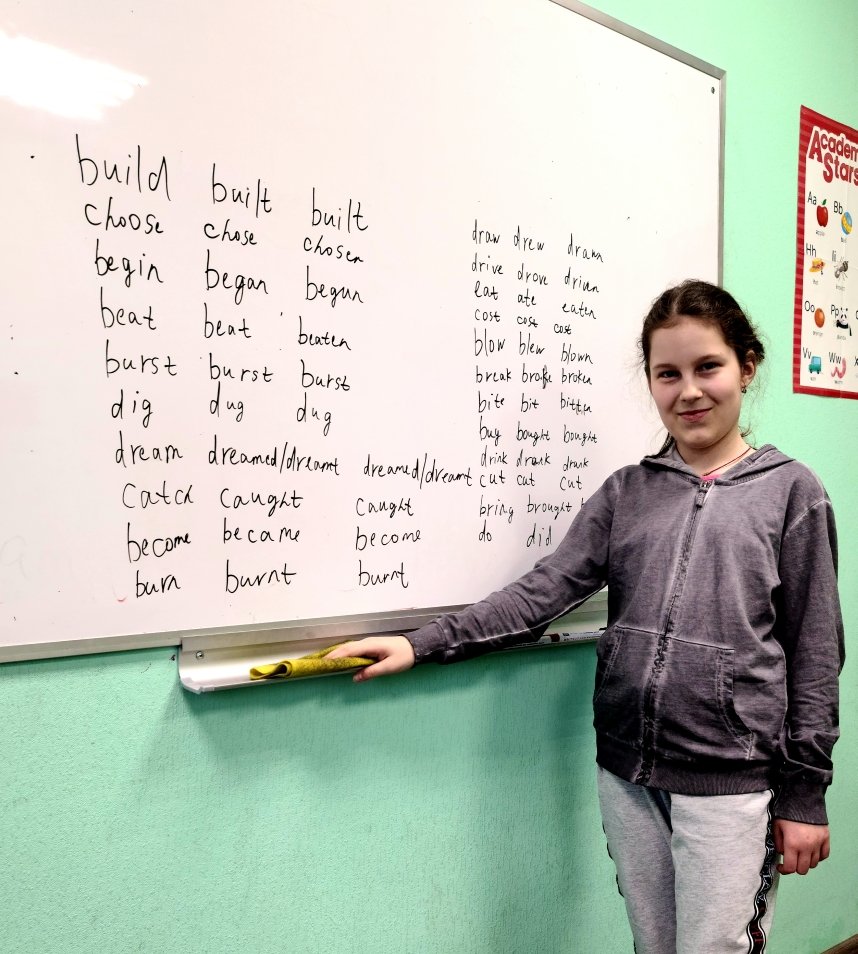 build built built
choose chose chosen
begin began begun
beat beat beaten
burst burst burst
dig dug dug
dream dreamed/dreamt dreamed/dreamt
catch caught caught
become became become
burn burnt burnt
draw drew drawn
drive drove driven
eat ate eaten
cost cost cost
blow blew blown
break broke broken
bite bit bitten
buy bought bought
drink drank drunk
cut cut cut
bring brought b
do did
Academ
Stars
Aa Bb
Hh Ii
Oo Pp
Vv Ww